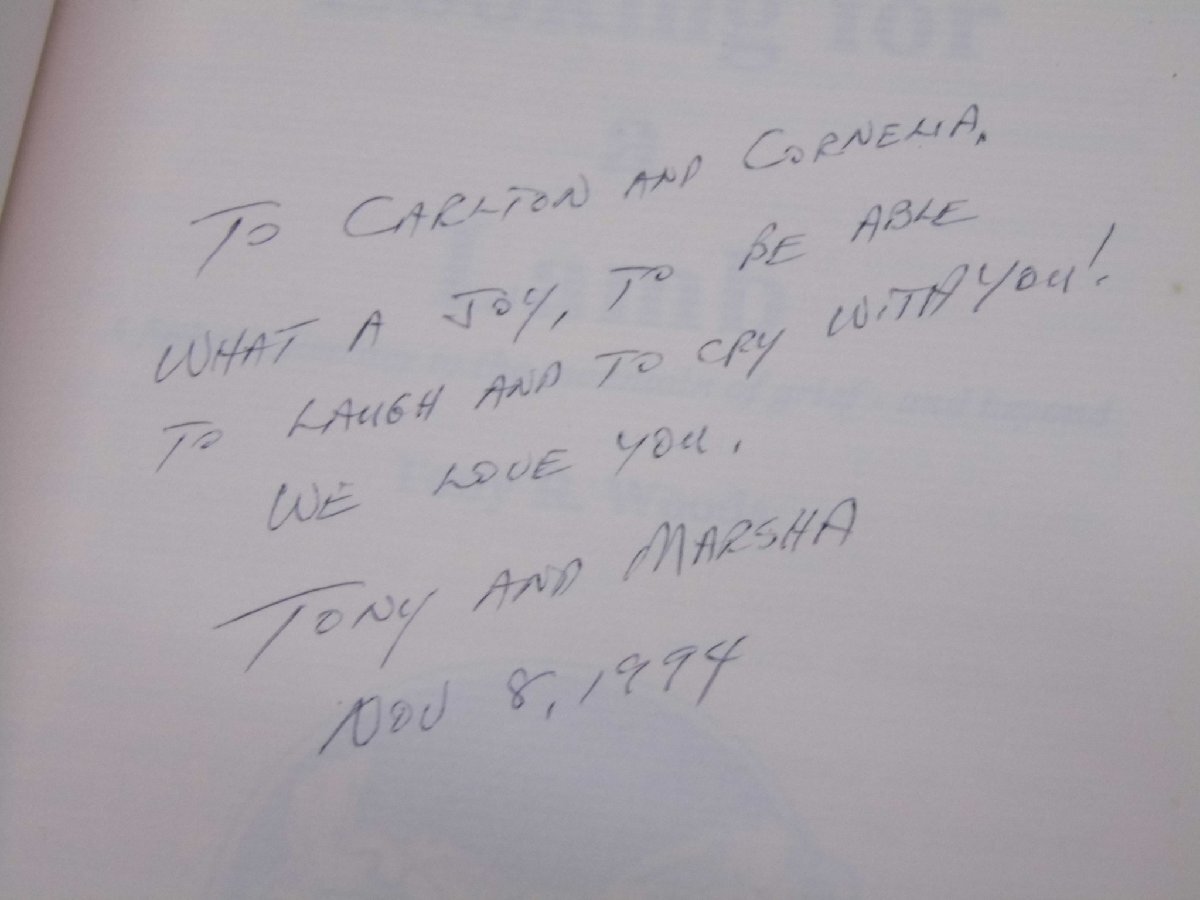 Looking for
a
Lamb
TO CARLTON AND CORNELIA.
WHAT A JOY, TO BE ABLE
TO LAUGH AND TO CRY WITH YOU!
WE LOVE YOU.
TONY AND MARSHA
NOV 8, 1994